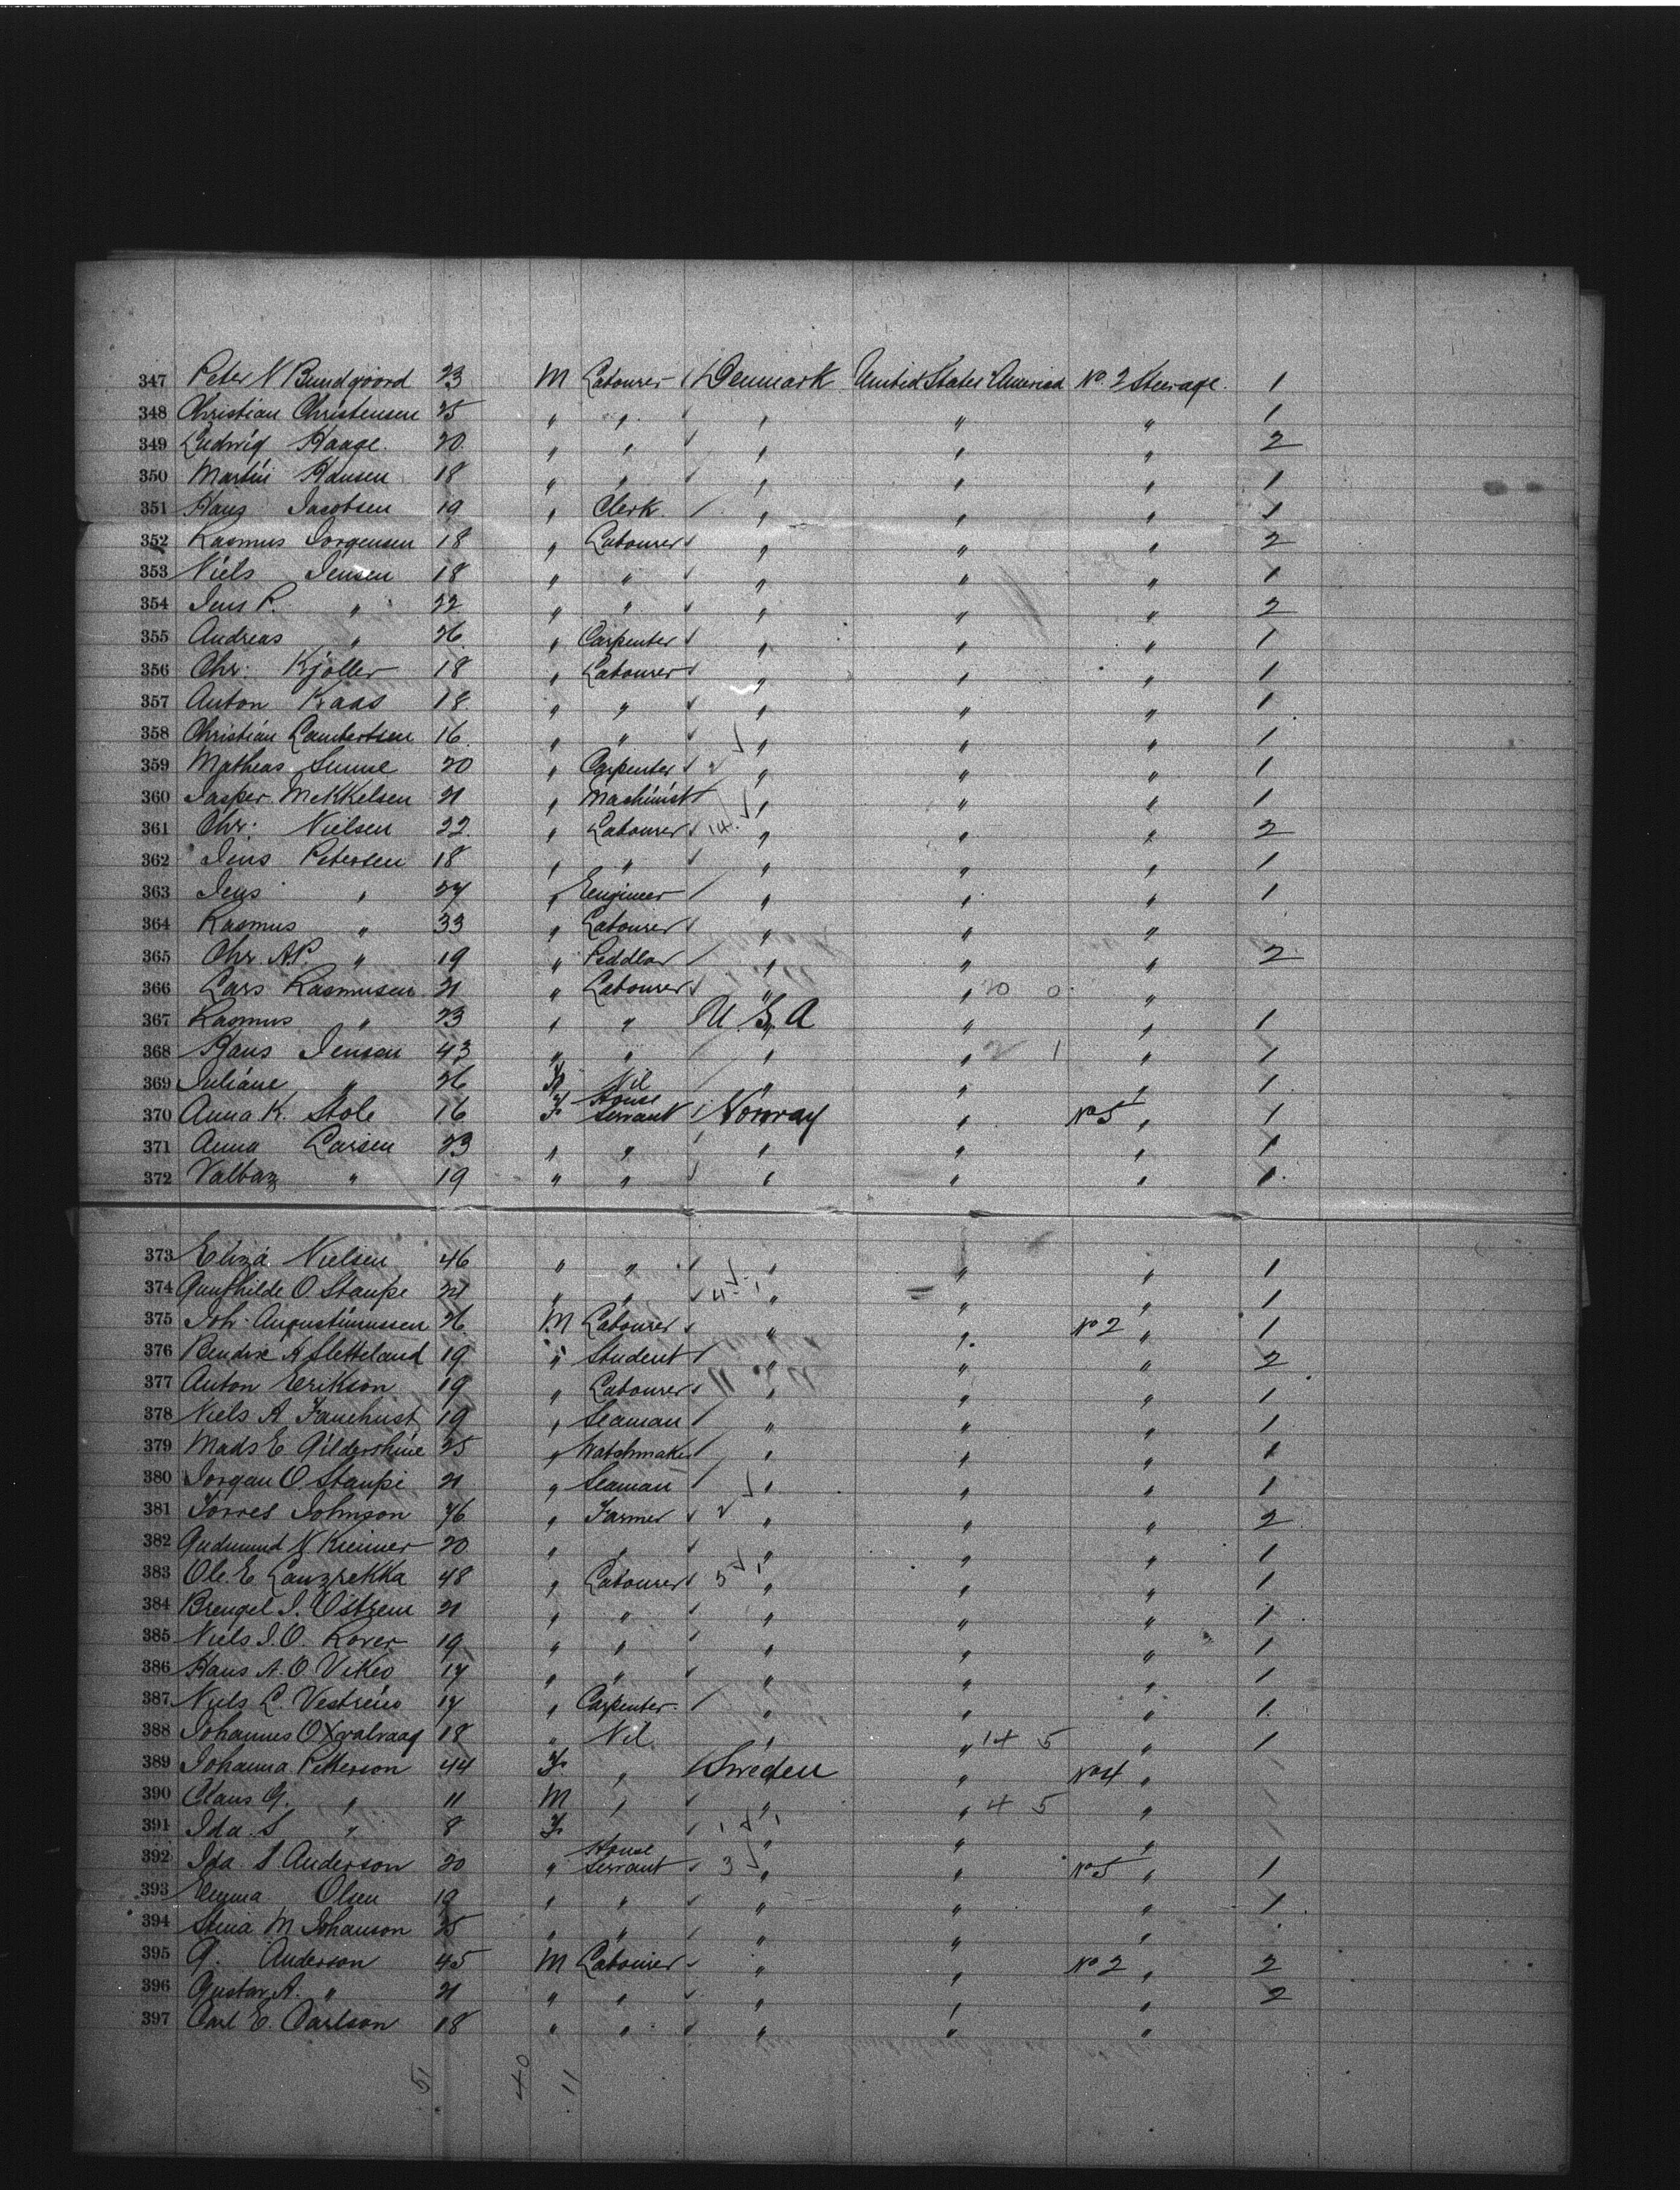 347 Peter N Bundgoord 23 M Labourer Denmark United States America No. 2 Steerage. 1
348 Christian Christensen 25 " " " " " 1
349 Ludwig Haage. 20 " " " " " 2
350 Martin Hansen 18 " " " " " 1
351 Hans Jacobsen 19 " Clerk " " " 1
352 Rasmus Jorgensen 18 " Labourer " " " 2
353 Niels Jensen 18 " " " " " 1
354 Jens P. " 22 " " " " " 2
355 Andreas " 26 " Carpenter " " " 1
356 Chr: Kjoller 18 " Labourer " " " 1
357 Anton Kaas 18 " " " " " 1
358 Christian Lambertsen 16 " " " " " 1
359 Matheas 20 " Carpenter 2 " " " 1
360 Jasper Mekkelsen 21 " Machinist " " " 1
361 Chr: Nielsen 22 " Labourer 14 " " " 2
362 Jens Petersen 18 " " " " " 1
363 Jens " 27 " Engineer " " " 1
364 Rasmus " 33 " Labourer " " "
365 Chr. A.P. " 19 " Peddlar " " " 2
366 Lars Rasmusen 21 " Labourer " " 20 0 "
367 Rasmus " 23 " " U.S.A " " 1
368 Hans Jensen 43 " " " " 2 1 " 1
369 Juliane " 26 F Nil " " " 1
370 Anna K. Stole 16 F House Servant Norway " No 5 " 1
371 Anna Larsen 23 " " " " " 1
372 " 19 " " " " " 1
373 Eliza Nielsen 46 " " " " " 1
374 Gunhilde O Staupe 27 " " 4 1 " " " 1
375 Joh. Augustinussen 26 M Labourer " " No 2 " 1
376 Bendix K Sletteland 19 " Student " " " 2
377 Anton Erikson 19 " Labourer " " " 1
378 Niels A 19 " Seaman " " " 1
379 Mads E Gildershine 25 " Watchmaker " " " 1
380 Jorgan O Staupe 21 " Seaman " " " 1
381 Torres Johnson 46 " Farmer 2 " " " 2
382 Gudmund N 20 " " " " " 1
383 Ole. E 48 " Labourer 5 1 " " " 1
384 J. 21 " " " " " 1
385 Niels J.O. Rover 19 " " " " " 1
386 Hans A. O. Vikeo 17 " " " " " 1
387 Niels L. Vestreus 17 " Carpenter " " " 1
388 Johannes O 18 " Nil " " 14 5 " 1
389 Johanna Petterson 44 F " Sweden " No 4 "
390 Claus G. " 11 M " " " 4 5 "
391 Ida S " 8 F 1 1 " " "
392 Ida S Anderson 20 " House Servant 3 " " No 5 " 1
393 Emma Olsen 19 " " " " " 1
394 Stina M Johanson 25 " " " " "
395 G. Anderson 45 M Labourer " " No 2 " 2
396 Gustav A. " 21 " " " " " 2
397 Carl E. Carlson 18 " " " " "
51 40 11